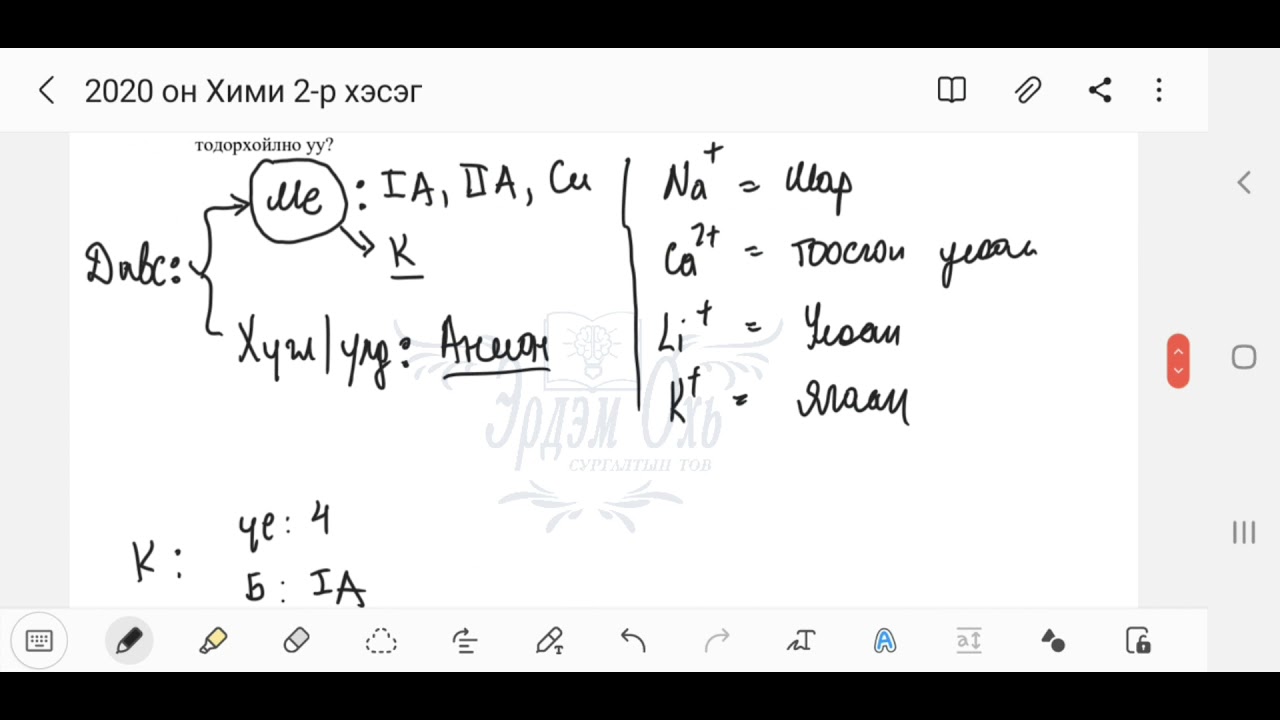 2020 он Хими 2-р хэсэг
тодорхойлно уу?
Давс: Me : IA, IIA, Cu
K
Хүчл/үлд: Анион
Na⁺ = Шар
Ca²⁺ = тоосгон улаан
Li⁺ = Улаан
K⁺ = Ягаан
Эрдэм Охь
СУРГАЛТЫН ТОВ
K: үе: 4
Б: IA